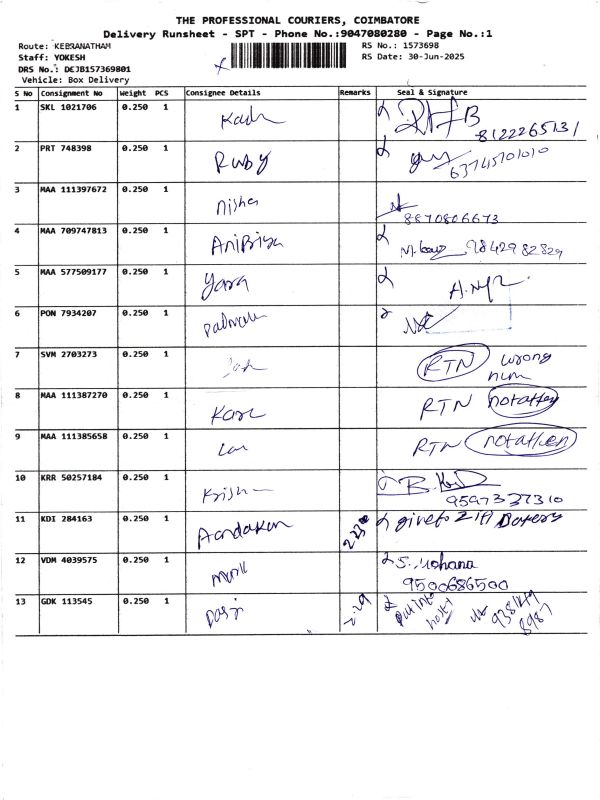 THE PROFESSIONAL COURIERS, COIMBATORE
Delivery Runsheet - SPT - Phone No.:9047080280 - Page No.:1
Route: KEERANATHAM
RS No.: 1573698
Staff: YOKESH
RS Date: 30-Jun-2025
DRS No.: DEJB157369801
Vehicle: Box Delivery
S No Consignment No Weight PCS Consignee Details Remarks Seal & Signature
1 SKL 1021706 0.250 1
8122265131
2 PRT 748398 0.250 1 Ruby
63745701010
3 MAA 111397672 0.250 1 nisha
8870806673
4 MAA 709747813 0.250 1 AniBiya
9842982829
5 MAA 577509177 0.250 1 yara
6 PON 7934207 0.250 1
7 SVM 2703273 0.250 1 RTN wrong
num
8 MAA 111387270 0.250 1 RTN
9 MAA 111385658 0.250 1 RTN
10 KRR 50257184 0.250 1 Krish
9597337310
11 KDI 284163 0.250 1
12 VDM 4039575 0.250 1 S. Mohana
9500686500
13 GDK 113545 0.250 1